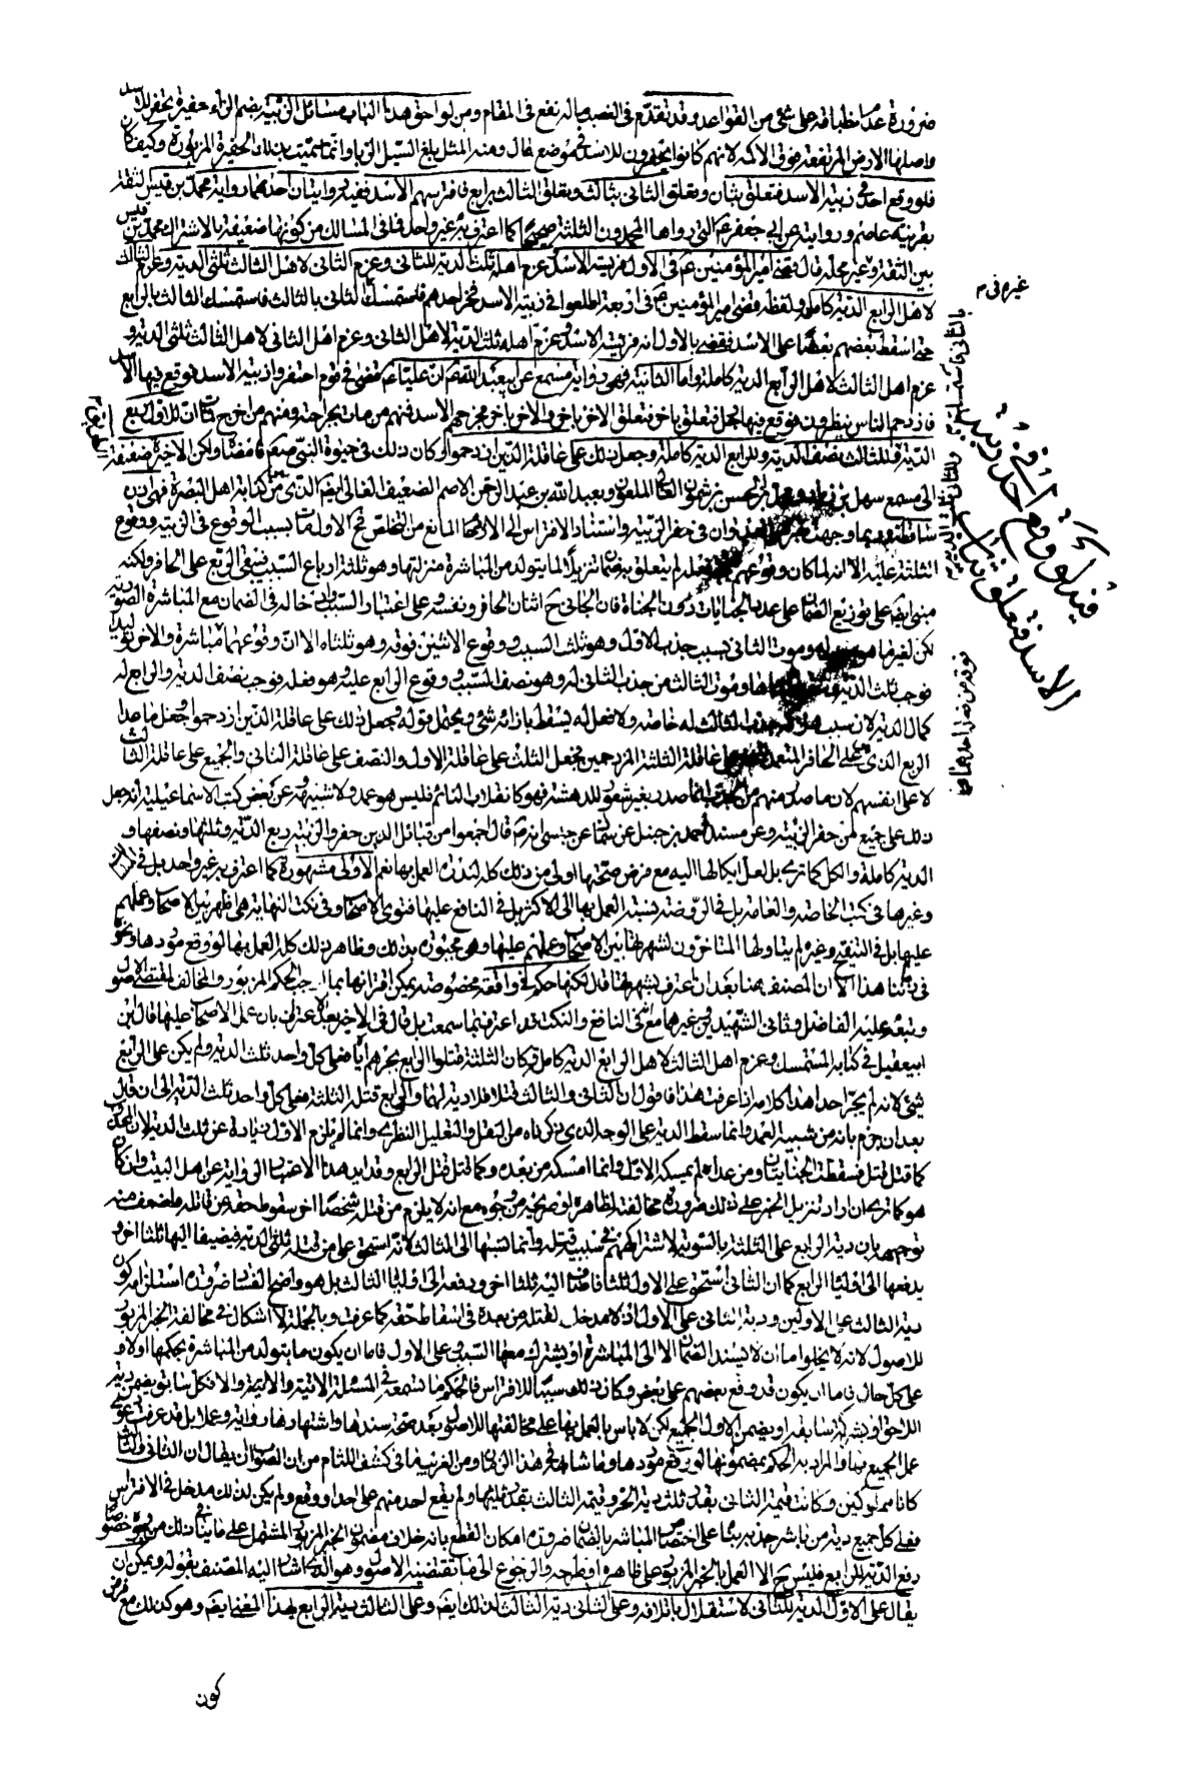 ضرورة عدم انطباقه على شئ من القواعد وقد تقدم فى الغصب ماله نفع فى المقام ومن لواحق هذا الباب مسائل الزبية بضم الزاء حفيرة تحفر للاسد
واصلها الارض المرتفعة فوق الاكمة لانهم كانوا يحفرون للاسد فى موضع عال ومنه المثل بلغ السيل الزبا وانما سميت بذلك الحفيرة المزبورة وكيف كان
فلو وقع احد فى زبية الاسد فتعلق بثان وتعلق الثانى بثالث وتعلق الثالث برابع فافترسهم الاسد ففيه روايتان احدهما رواية محمد بن قيس الثقة
بقرينة عاصم وروايته عن ابى جعفر ع التى رواها المحمدون الثلثة صحيحا كما اعترف به غير واحد فما فى المسالك من كونها ضعيفة بالاشتراك محمد بن قيس
بين الثقة وغيره محله قال قضى امير المؤمنين ع فى الاول فريسة الاسد وغرم اهله ثلث الدية للثانى وغرم الثانى لاهل الثالث ثلثى الدية وغرم الثالث
لاهل الرابع الدية كاملة ولفظه قضى امير المؤمنين ع فى اربعة اطلعوا فى زبية الاسد فخر احدهم فاستمسك الثانى بالثالث فاستمسك الثالث بالرابع
حتى اسقط بعضهم بعضا على الاسد فقضى بالاول انه فريسة الاسد وغرم اهله ثلث الدية لاهل الثانى وغرم اهل الثانى لاهل الثالث ثلثى الدية و
غرم اهل الثالث لاهل الرابع الدية كاملة واما الثانية فهى رواية مسمع عن ابى عبد الله ع ان عليا ع قضى فى قوم احتفروا زبية الاسد فوقع فيها الاسد
فازدحم الناس ينظرون فوقع فيها رجل فتعلق باخر فتعلق الاخر باخر والاخر باخر فجرحهم الاسد فمنهم من مات بجراحة ومنهم من اخرج فمات ان للاول ربع
الدية وللثالث نصف الدية وللرابع الدية كاملة وجعل ذلك على عاقلة الذين ازدحموا وكان ذلك فى حيوة النبى ص فامضاه ولكن الاخيرة ضعيفة
الى مسمع سهل بن زياد ومحمد بن الحسن بن شمون الغالى الملعون وبعبد الله بن عبد الرحمن الاصم الضعيف الغالى ايضا الذى من كذابة اهل البصرة فهى اذن
ساقطة وربما وجهت الازدحام وان فى حفر الزبية واستناد الافتراس الى الازدحام المانع من التخلص فح الاول مات بسبب الوقوع فى الزبية ووقوع
الثلثة عليه الا انه لما كان وقوعهم بفعله لم يتعلق به ضمان تنزيلا لما يتولد من المباشرة منزلتها وهو ثلثة ارباع السبب فيبقى الربع على الحافر ولكنه
مبنى ايضا على توزيع الضمان على عدد الجنايات دون الجناة فان الجانى ح اثنان الحافر ونفسه وعلى اعتبار السبب وادخاله فى الضمان مع المباشرة
وموت الثانى بسبب جذب الاول وهو ثلث السبب ووقوع الاثنين فوقه وهو ثلثاه الا ان وقوعهما مباشرة
فوجب ثلث الدية وموت الثالث من جذب الثانى له وهو نصف السبب ووقوع الرابع عليه وهو فعله فوجب نصف الدية والرابع له
كمال الدية لان سبب هلاكه جذب الثالث له خاصة ولا فعل له يسقط بازائه شئ ويحتمل قوله وجعل ذلك على عاقلة الذين ازدحموا وجعل ما عدا
الربع الذى على الحافر المتعمد على عاقلة الثلثة المزدحمين فجعل الثلث على عاقلة الاول والنصف على عاقلة الثانى والجميع على عاقلة الثالث
لا على انفسهم لان ما صدر منهم من الجذب انما صدر بغير شعور للدهشة فهو كانقلاب النائم فليس هو عمد ولا شبيهه وعن بعض كتب الاسماعيلية انه جعل
ذلك على جميع من حفر الزبية وعن مسند احمد بن حنبل عن سماك عن حبيش انه ع قال اجمعوا من قبائل الذين حفروا الزبية ربع الدية وثلثها ونصفها و
الدية كاملة والكل كما ترى بل لعل ايكالها اليه مع فرض صحتها اولى من ذلك كله لندرة العمل بها نعم الاولى مشهورة كما اعترف به غير واحد بل
وغيرها فى كتب الخاصة والعامة بل فى الروضة نسبة العمل بها الى الاكثر بل فى النافع عليها فتوى الاصحاب وفى نكت النهاية هى ظهر بين الاصحاب وعملهم
عليها بل فى التنقيح وغيره لم يتاولها المتاخرون لشهرتها بين الاصحاب وعملهم عليها وهو مجبورة بذلك وظاهر ذلك كله العمل بها لو وقع موردها
فى زماننا هذا الا ان المصنف هنا بعد ان اعترف بشهرتها قال لكنها حكم فى واقعة مخصوصة يمكن اقترانها بما اوجب الحكم المزبور المخالف لمقتضى الاصول
وتبعه عليه الفاضل وثانى الشهيدين وغيرهما مع انه فى النافع والنكت قد اعترف بما سمعت بل قال فى الاخير بعد الاعتراف بان عمل الاصحاب عليها قال ابن
ابى عقيل فى كتابه المستمسك وغرم اهل الثالث لاهل الرابع الدية كاملة وكان الثلثة قتلوا الرابع بجرهم اياه فعلى كل واحد ثلث الدية ولم يكن على الرابع
شئ لانه لم يجر احدا هذا كلامه اذا عرفت هذا فاقول ان الثانى والثالث قتلا فلا دية لهما والرابع قتله الثلثة فعلى كل واحد ثلث الدية الى ان قال
بعد ان جزم بانه من شبيه العمد وانما سقط الدية على الوجه الذى ذكرناه من النقل والتعليل النظرى وانما لم يلزم الاول زيادة عن ثلث الدية لان
كما قتل قتل فسقطت الجنايتان ومن عداه لم يمسكه الاول وانما امسكه من بعده وكما قتل قتل الرابع وقد ايد هذا الاعتبار الرواية عن اهل البيت وان كان
هو كما ترى ان اراد تنزيل الخبر على ذلك ضرورة مخالفته لظاهره او صريحه من وجوه مع انه لا يلزم من قتله شخصا اخر سقوط حقه عن قاتله ومنه
توجيهه بان دية الرابع على الثلثة بالسوية لاشتراكهم فى سببية قتله وانما نسبها الى الثالث لانه استحق على من قبله ثلثى الدية فيضيف اليها ثلثا اخر و
يدفعها الى اولياء الرابع كما ان الثانى استحق على الاول ثلثا فاضاف اليه ثلثا اخر ودفعه الى اولياء الثالث بل هو واضح الفساد ضرورة استلزامه كون
دية الثالث على الاولين ودية الثانى على الاول اذ لا مدخل لقتله من بعده فى اسقاط حقه كما عرفت وبالجملة لا اشكال فى مخالفة الخبر المزبور
للاصول لانه لا يخلوا اما ان لا يسند الضمان الا الى المباشرة او يشترك معها السبب وعلى الاول فاما ان يكون ما يتولد من المباشرة بحكمها اولا و
على كل حال فاما ان يكون قد وقع بعضهم على بعض وكان ذلك سببا للافتراس فالحكم ما تسمعه فى المسئلة الاتية والا فكل سابق يضمن دية
اللاحق او يشركه سابقه او يضمن الاول الجميع لكن لا باس بالعمل بها على مخالفتها للاصول بعد صحة سندها واشتهارها رواية وعملا بل قد عرفت دعوى
عمل الجميع بها والمراد به الحكم بمضمونها لو وقع موردها وما شابهه فى هذا الزمان ومن الغريب ما فى كشف اللثام من ان الصواب ان يقال ان الثانى والثالث
كانا مملوكين وكانت قيمة الثانى بقدر ثلث دية الحر وقيمة الثالث بقدر ثلثيها ولم يقع احد منهم على احد او وقع ولم يكن لذلك مدخل فى الافتراس
فعلى كل جميع دية من باشر جذبه بناء على اختصاص المباشر بالضمان ضرورة امكان القطع بانه خلاف مضمون الخبر المزبور المشتمل على ما ينافى ذلك من وجوه خصوصا
دفع الدية للرابع فليس ح الا العمل بالخبر المزبور على ظاهره او طرحه والرجوع الى ما تقتضيه الاصول وهو الذى اشار اليه المصنف بقوله ويمكن ان
يقال على الاول الدية للثانى لاستقلاله باتلافه وعلى الثانى دية الثالث لذلك ايضا وعلى الثالث دية الرابع لهذا المعنى ايضا وهو كذلك مع فرض
كون
غيره فى م
فيمن لو وقع احد فى زبية
الاسد فتعلق بثان